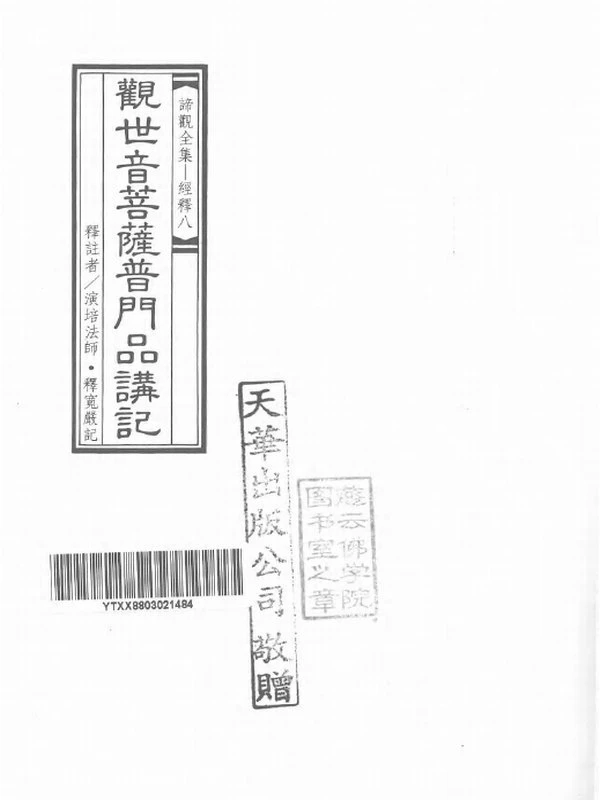 諦觀全集—經釋八
觀世音菩薩普門品講記
釋註者／演培法師・釋寬嚴記
天華出版公司敬贈
云佛学院
图书室之章
YTXX8803021484